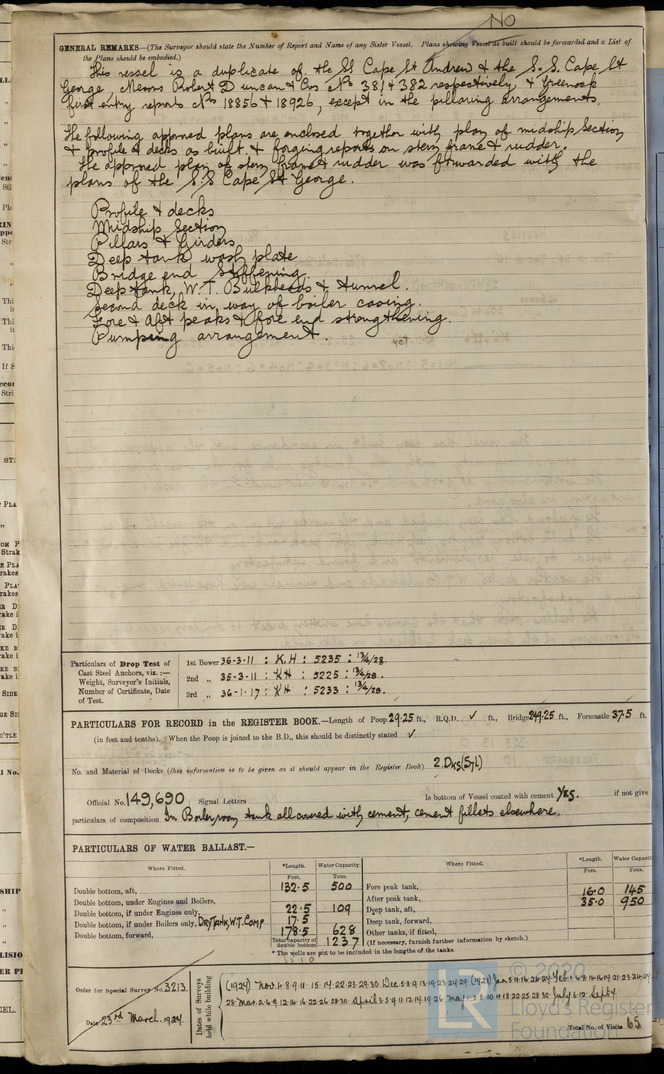 NO
GENERAL REMARKS—(The Surveyor should state the Number of Report and Name of any Sister Vessel. Plans showing Vessel as built should be forwarded and a List of
the Plans should be embodied.)
This vessel is a duplicate of the SS Cape St Andrew & the S.S. Cape St
George, Messrs Robert Duncan & Cos Nos 381 & 382 respectively, & Greenock
first entry reports Nos 18856 & 18926, except in the pillaring arrangements.
The following approved plans are enclosed together with plan of midship section
& profile & decks as built & forging reports on stern frame & rudder.
The approved plan of stern frame & rudder was forwarded with the
plans of the S.S Cape St George.
Profile & decks
Midship Section
Pillars & Girders
Deep tank wash plate
Bridge end stiffening.
Deep tank, W.T. Bulkheads & tunnel.
Second deck in way of boiler casing.
Fore & Aft peaks & fore end strengthening.
Pumping arrangement.
Particulars of Drop Test of
Cast Steel Anchors, viz. :—
Weight, Surveyor's Initials,
Number of Certificate, Date
of Test.
1st Bower 36-3-11 : K.H : 5235 : 13/4/28.
2nd „ 35-3-11 : KH : 5225 : 13/4/28.
3rd „ 36-1-17 : KH : 5233 : 13/4/28.
PARTICULARS FOR RECORD in the REGISTER BOOK.—Length of Poop 29.25 ft., R.Q.D. ✓ ft., Bridge 249.25 ft., Forecastle 37.5 ft.
(in feet and tenths). When the Poop is joined to the B.D., this should be distinctly stated ✓
No. and Material of Decks (this information is to be given as it should appear in the Register Book) 2.Dks(Stl)
Official No. 149,690 Signal Letters Is bottom of Vessel coated with cement Yes. if not give
particulars of composition In Boiler room tank all covered with cement, cement fillets elsewhere.
PARTICULARS OF WATER BALLAST.—
Where Fitted. *Length. Water Capacity. Where Fitted. *Length. Water Capacity
Feet. Tons. Feet. Tons.
Double bottom, aft, 132.5 500 Fore peak tank, 16.0 145
Double bottom, under Engines and Boilers, After peak tank, 35.0 950
Double bottom, if under Engines only, 22.5 109 Deep tank, aft,
Double bottom, if under Boilers only, Dry Tank, W.T. Comp 17.5 Deep tank, forward,
Double bottom, forward, 178.5 628 Other tanks, if fitted,
Total capacity of double bottom 1237 (If necessary, furnish further information by sketch.)
* The wells are not to be included in the lengths of the tanks.
Order for Special Survey No. 3213.
Date 23rd March 1927.
Dates of Surveys held while building
Total No. of Visits 65
© 2020
LR
Lloyd's Register
Foundation